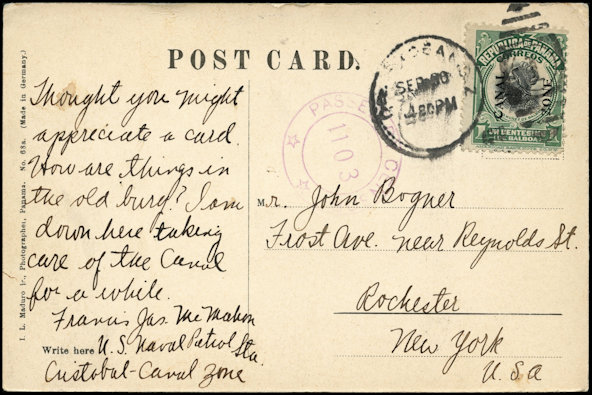 POST CARD.
I. L. Maduro Jr., Photographer, Panama. No. 68a. (Made in Germany.)
Thought you might
appreciate a card.
How are things in
the old burg? I am
down here taking
care of the Canal
for a while.
Francis Jas. McMahon
Write here U.S. Naval Patrol Sta.
Cristobal-Canal Zone
SEP 30
4 30 PM
PASSED
1103
REPUBLICA DE PANAMA
CORREOS
CANAL
ZONE
UN CENTESIMO
DE BALBOA
Mr. John Bogner
Frost Ave. near Reynolds St.
Rochester
New York
U.S.A